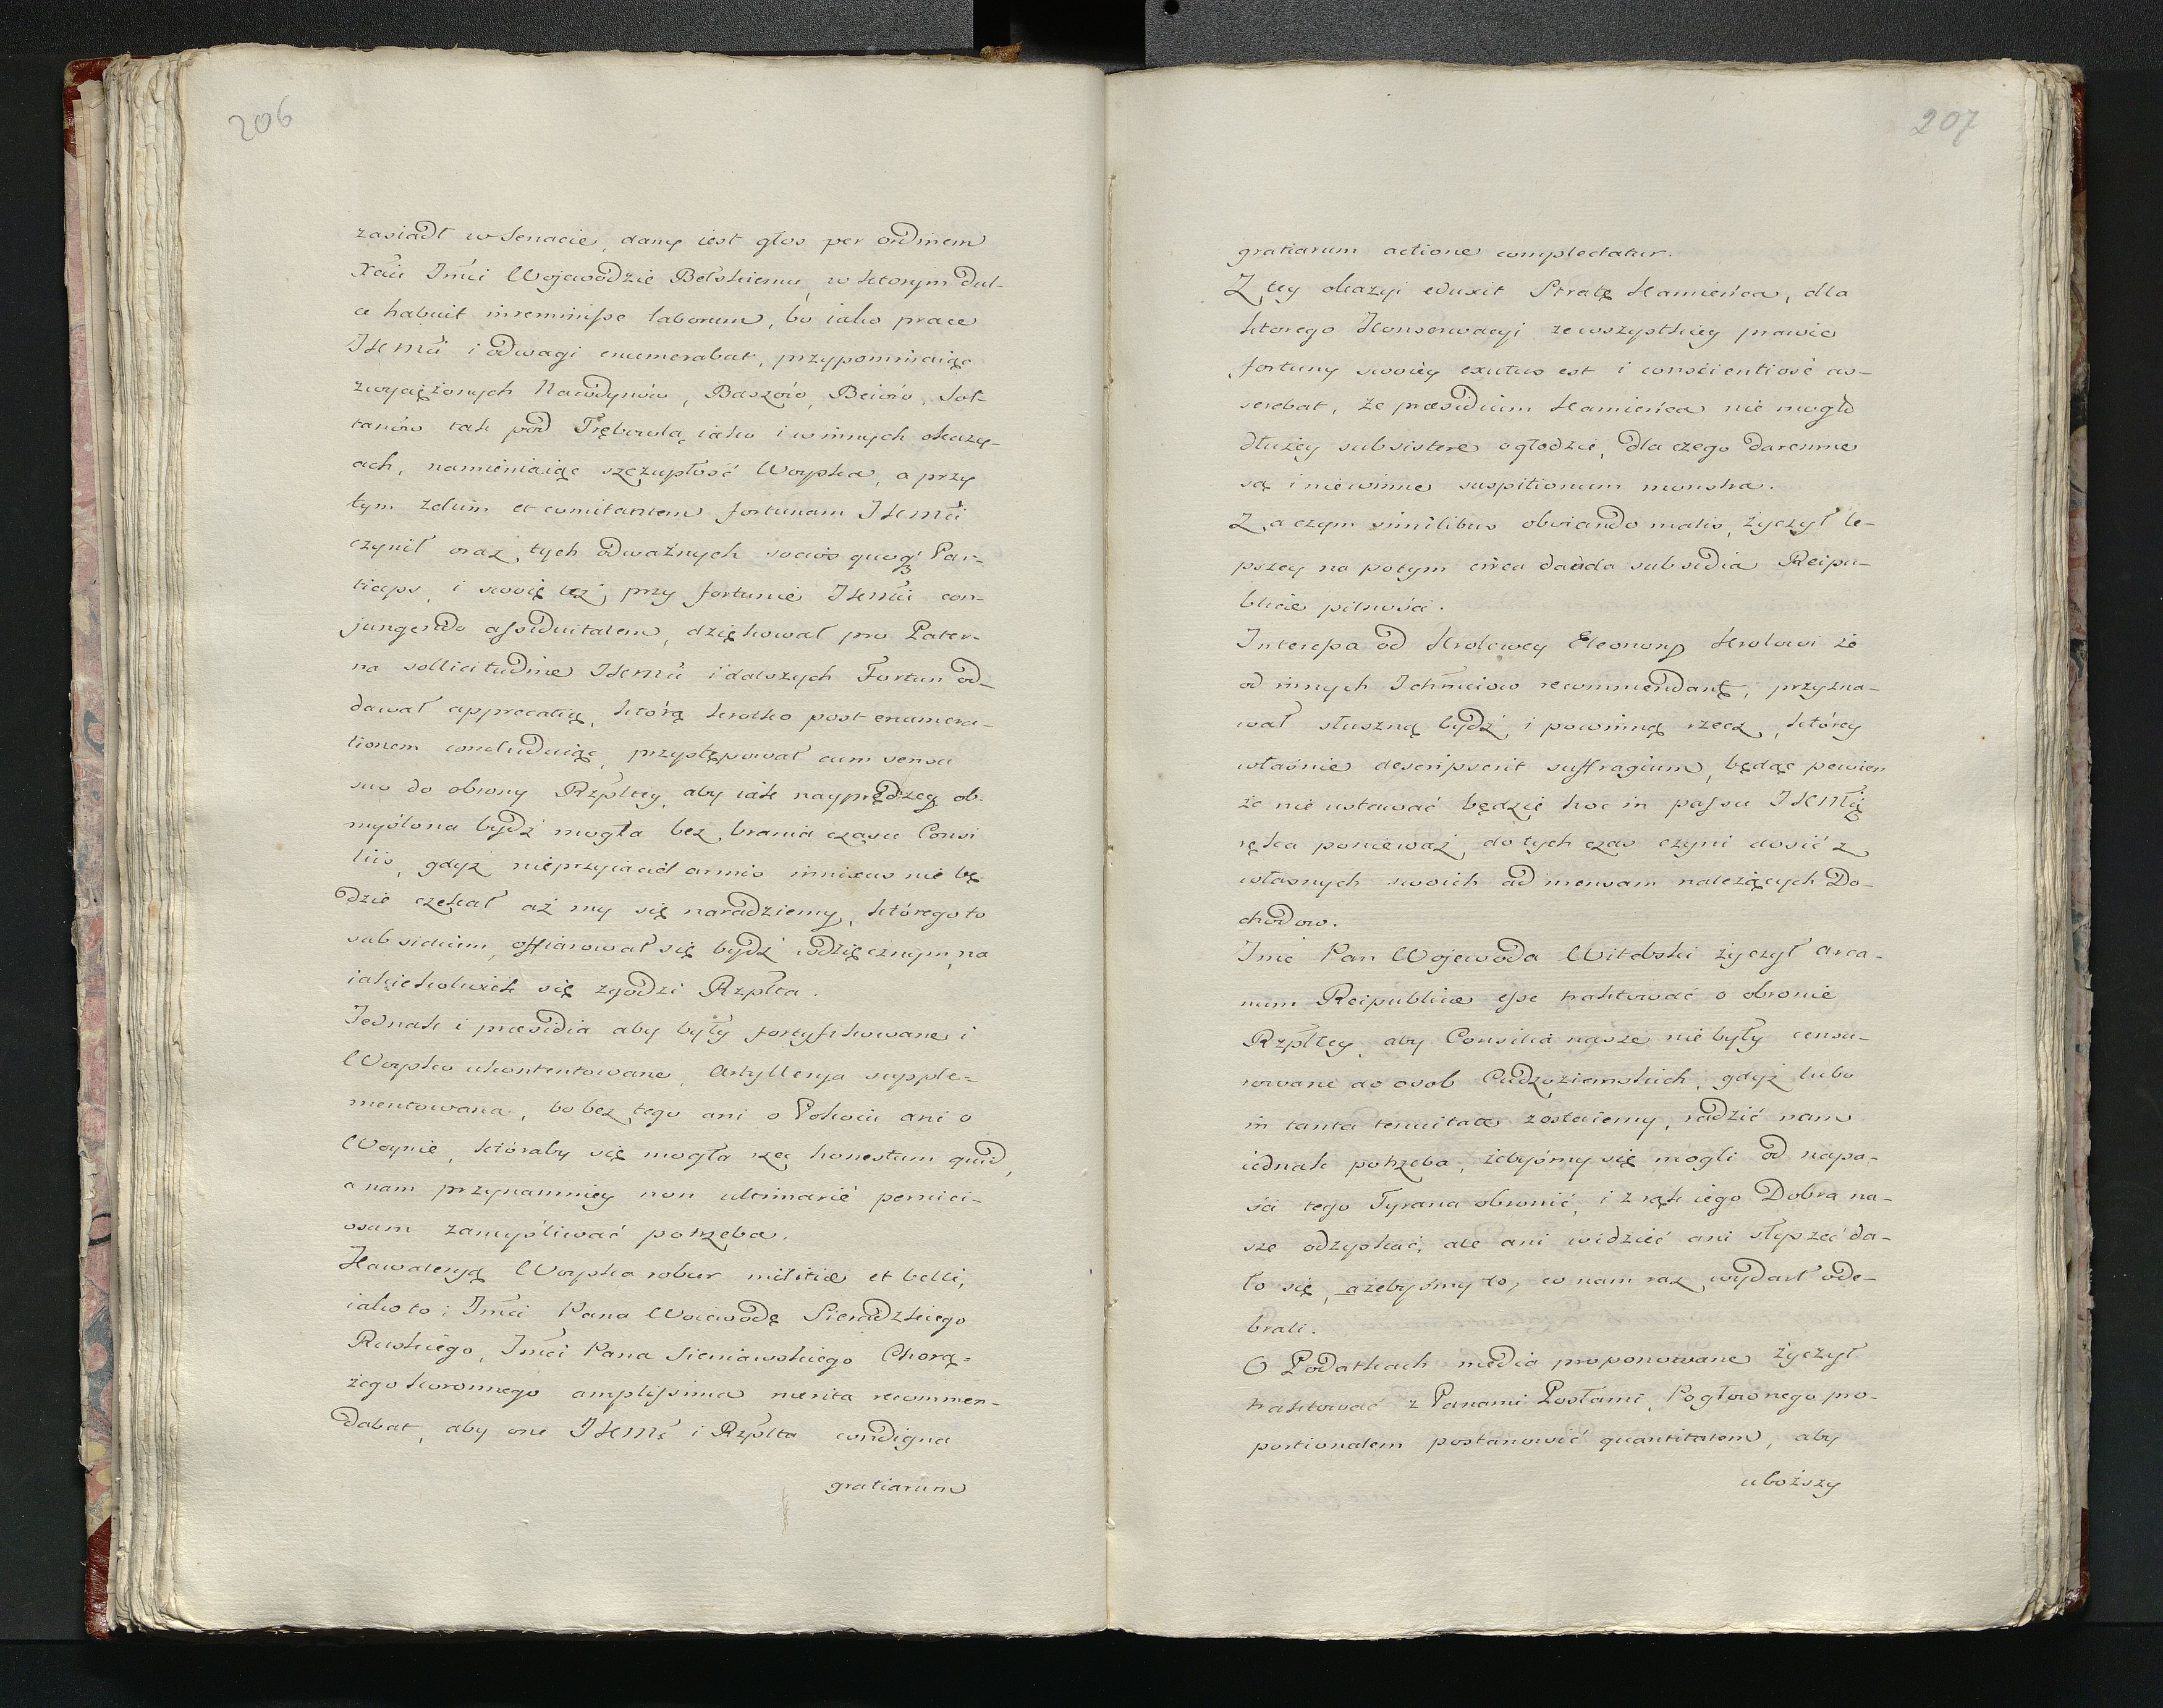 206
zasiadł w Senacie, dany iest głos per ordinem
Xciu Jmci Wojewodzie Bełskiemu, w ktorym dul-
ce habuit inreminisse laborum, bo iako prace
JKMci i odwagi enumerabat, przypominaiąc
zwyciężonych Narodynow, Baszow, Beiow, Soł-
tanow tak pod Trębowlą, iako i w innych okazy-
ach, namieniaiąc szczupłość Woyska, a przy
tym zelum et comitantem fortunam JKMci
czynił oraz tych odważnych socios quoq Par-
ticeps, i swoię też przy fortunie JKMci con-
jungendo assiduitatem, dziękował pro Pater-
na sollicitudine JKMci i dalszych Fortun od-
dawał apprecatią, którą krotko post enumera-
tionem concluduiąc, przystępował cum sensu
suo do obrony Rzpltey, aby iak nayprędzey ob-
myślona bydź mogła bez brania czasu Consi
liis, gdyż nieprzyiaciel armis innixus nie bę-
dzie czekał aż my się naradziemy, którego to
subsidium, offiarował się bydź wdzięcznym, na
iakiekolwiek się zgodzi Rzplta.
Jednak i præsidia aby były fortyfikowane i
Woysko ukontentowane, Artyllerya supple-
mentowana, bo bez tego ani o Pokoiu ani o
Woynie, któraby się mogła rzec honestum quid,
a nam przynamniey non ultimarié pernici-
osam zamyśliwać potrzeba.
Kawaleryą Woyska robur militiæ et belli,
iako to: Jmci Pana Woiewodę Sieradzkiego
Ruskiego, Jmci Pana Sieniawskiego Chorą-
żego koronnego amplissima merita recommen-
dabat, aby one JKMć i Rzplta condigna
gratiarum
207
gratiarum actione complectatur.
Z tey okazyi eduxit Stratę Kamieńca, dla
ktorego Konserwacyi ze wszystkiey prawie
fortuny swoiey exutus est i conscientiosé as-
serebat, że præsidium Kamieńca nie mogło
dłużey subsistere o głodzie, dla czego daremne
są i niewinne suspitionum monstra.
Zaczym similibus obviando malis, życzył le-
pszey na potym circa danda subsidia Reipu-
blicæ pilności.
Interessa od Krolowey Eleonory Krolowi że
od innych Ichmciow recommendant, przyzna-
wał słuszną bydź i powinną rzecz, którey
właśnie descripserit suffragium, będąc pewien
że nie ustawać będzie hoc in passu JKMći
ręka ponieważ do tych czas czyni dosić z
własnych swoich ad mensam należących Do-
chodow.
Jmć Pan Wojewoda Witebski życzył arca-
num Reipublicæ esse traktować o obronie
Rzpltey, aby Consilia nasze nie były censu-
rowane do osob Cudzoziemskich, gdyż lubo
in tanta tenuitate zostaiemy, radzić nam
iednak potrzeba, żebyśmy się mogli od napa-
ści tego Tyrana obronić, i z rąk iego Dobra na-
sze odzyskać, ale ani widzieć ani słyszeć da-
ło się, ażebyśmy to, co nam raz wydarł ode-
brali.
O Podatkach media proponowane życzył
traktować z Panami Posłami, Pogłownego pro-
portionalem postanowić quantitatem, aby
uboższy